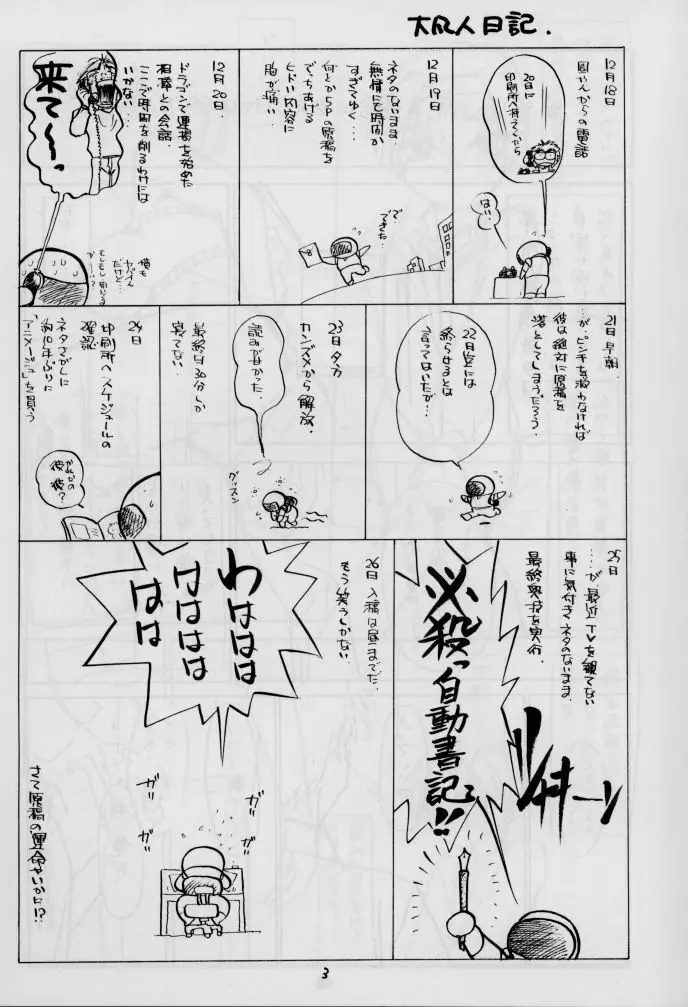 大凡人日記.
12月18日
因やんからの電話
20日に
印刷所へ持ってくから
はい.
12月19日
ネタのないまま
無情にも時間が
すぎてゆく…
何とか5Pの原稿を
でっちあげる
ヒドい内容に
胸が痛い.
で.
できた…
12月20日.
ドラゴンで連載を始めた
相棒との会話.
ここで時間を削るわけには
いかない…
来て〜〜っ
俺も
ヤバイん
だけど…
21日 早朝.
…が.ピンチを救わなければ
彼は絶対に原稿を
落としてしまうだろう.
22日までには
終らせるとは
言ってはいたが…
23日 夕方
カンヅメから解放.
最終は30分しか
寝てない
読みが甘かった.
グッスン
24日
印刷所へスケジュールの
確認
ネタさがしに
約10年ぶりに
「アニメージュ」を買う
25日
……が.最近TVを観てない
事に気付きネタのないまま.
最終奥技を実行.
必殺っ自動書記!!
26日 入稿は昼までだ.
もう笑うしかない.
わははは
はははは
はは
ガガ
ガガ
ガガ
ガガ
さて原稿の運命やいかに!?
3